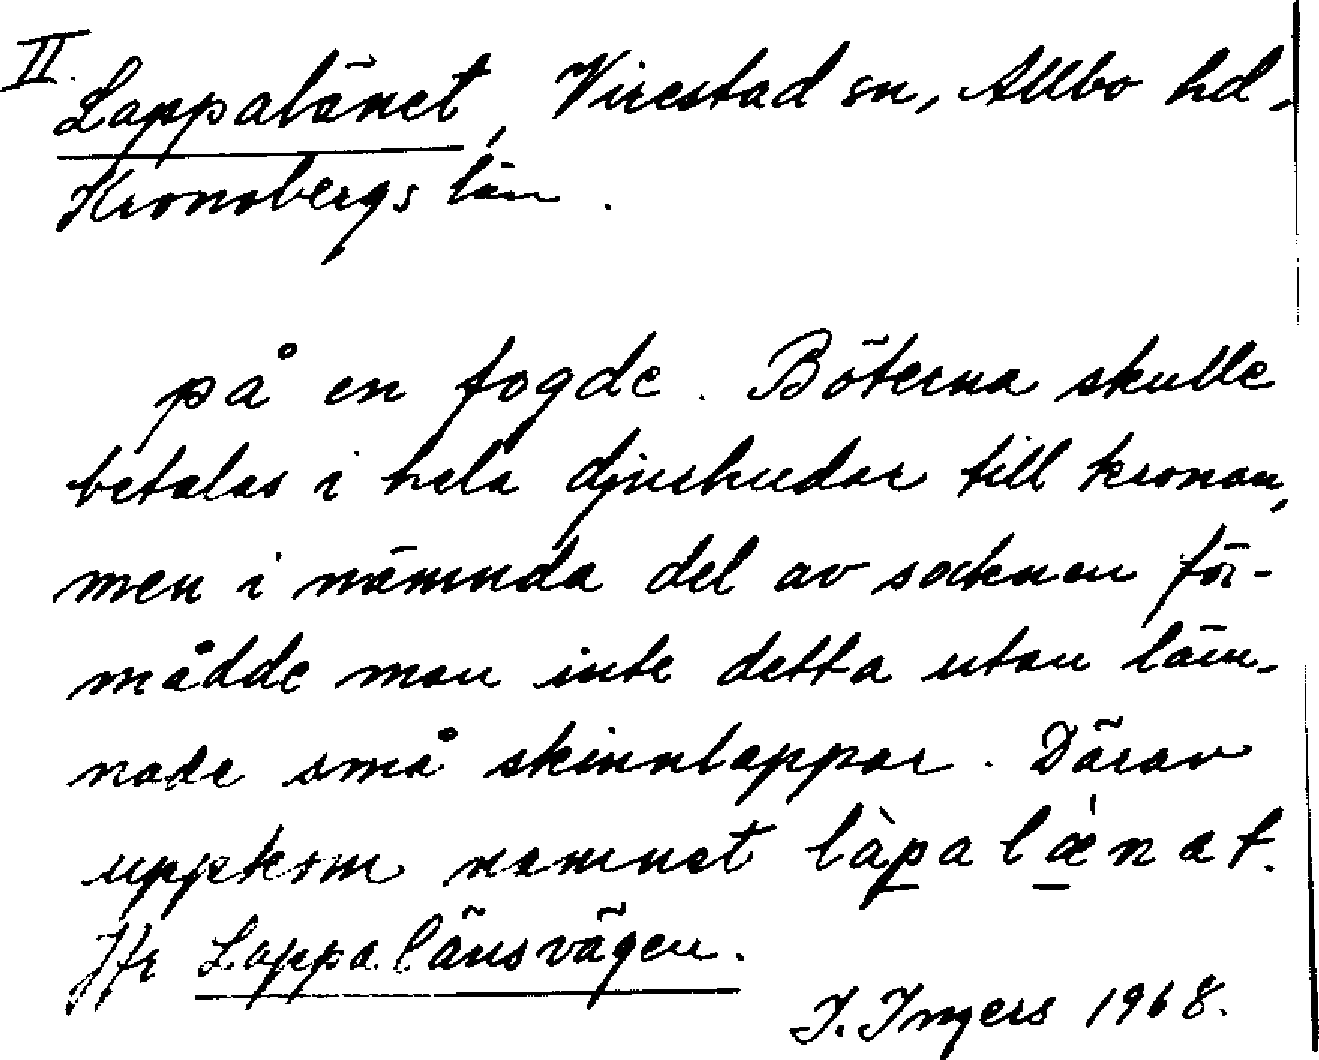 II.
Lappalänet, Virestad sn, Allbo hd.
Kronobergs län.
på en fogde. Böterna skulle
betalas i hela djurhudar till kronan,
men i nämnda del av socknen för-
mådde man inte detta utan läm-
nade små skinnlappar. Därav
uppkom namnet làpalǽnat.
Jfr Lappalänsvägen.
I. Ingers 1968.